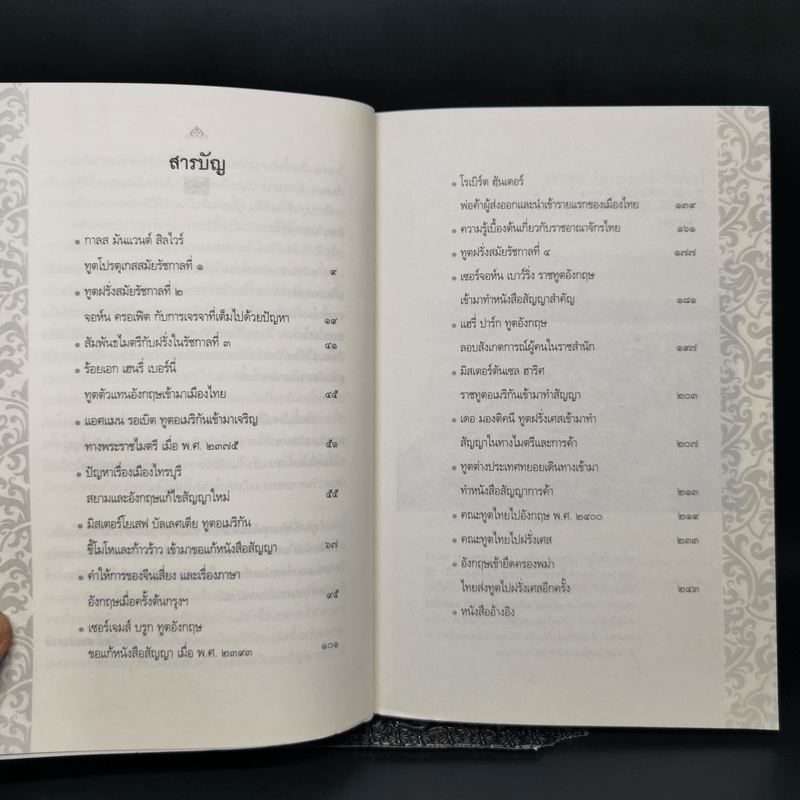 สารบัญ
• กาลส มันแวนต์ สิลไวร์
ทูตโปรตุเกสสมัยรัชกาลที่ ๑ ๙
• ทูตฝรั่งสมัยรัชกาลที่ ๒
จอห์น ครอเฟิต กับการเจรจาที่เต็มไปด้วยปัญหา ๑๙
• สัมพันธไมตรีกับฝรั่งในรัชกาลที่ ๓ ๔๑
• ร้อยเอก เฮนรี่ เบอร์นี่
ทูตตัวแทนอังกฤษเข้ามาเมืองไทย ๔๕
• แอศแมน รอเบิต ทูตอเมริกันเข้ามาเจริญ
ทางพระราชไมตรี เมื่อ พ.ศ. ๒๓๗๕ ๕๑
• ปัญหาเรื่องเมืองไทรบุรี
สยามและอังกฤษแก้ไขสัญญาใหม่ ๕๕
• มิสเตอร์โยเสฟ บัลเลศเตีย ทูตอเมริกัน
ขี้โมโหและก้าวร้าว เข้ามาขอแก้หนังสือสัญญา ๖๗
• คำให้การของจีนเสี่ยง และเรื่องภาษา
อังกฤษเมื่อครั้งต้นกรุงฯ ๙๕
• เซอร์เจมส์ บรูก ทูตอังกฤษ
ขอแก้หนังสือสัญญา เมื่อ พ.ศ. ๒๓๙๓ ๑๐๑
• โรเบิร์ต ฮันเตอร์
พ่อค้าผู้ส่งออกและนำเข้ารายแรกของเมืองไทย ๑๓๙
• ความรู้เบื้องต้นเกี่ยวกับราชอาณาจักรไทย ๑๖๑
• ทูตฝรั่งสมัยรัชกาลที่ ๔ ๑๗๗
• เซอร์จอห์น เบาว์ริ่ง ราชทูตอังกฤษ
เข้ามาทำหนังสือสัญญาสำคัญ ๑๘๑
• แฮรี่ ปาร์ก ทูตอังกฤษ
ลอบสังเกตการณ์ผู้คนในราชสำนัก ๑๙๗
• มิสเตอร์ตันเซล ฮาริศ
ราชทูตอเมริกันเข้ามาทำสัญญา ๒๐๓
• เดอ มองติคนี ทูตฝรั่งเศสเข้ามาทำ
สัญญาในทางไมตรีและการค้า ๒๐๗
• ทูตต่างประเทศทยอยเดินทางเข้ามา
ทำหนังสือสัญญาการค้า ๒๑๓
• คณะทูตไทยไปอังกฤษ พ.ศ. ๒๔๐๐ ๒๑๙
• คณะทูตไทยไปฝรั่งเศส ๒๓๓
• อังกฤษเข้ายึดครองพม่า
ไทยส่งทูตไปฝรั่งเศสอีกครั้ง ๒๔๓
• หนังสืออ้างอิง